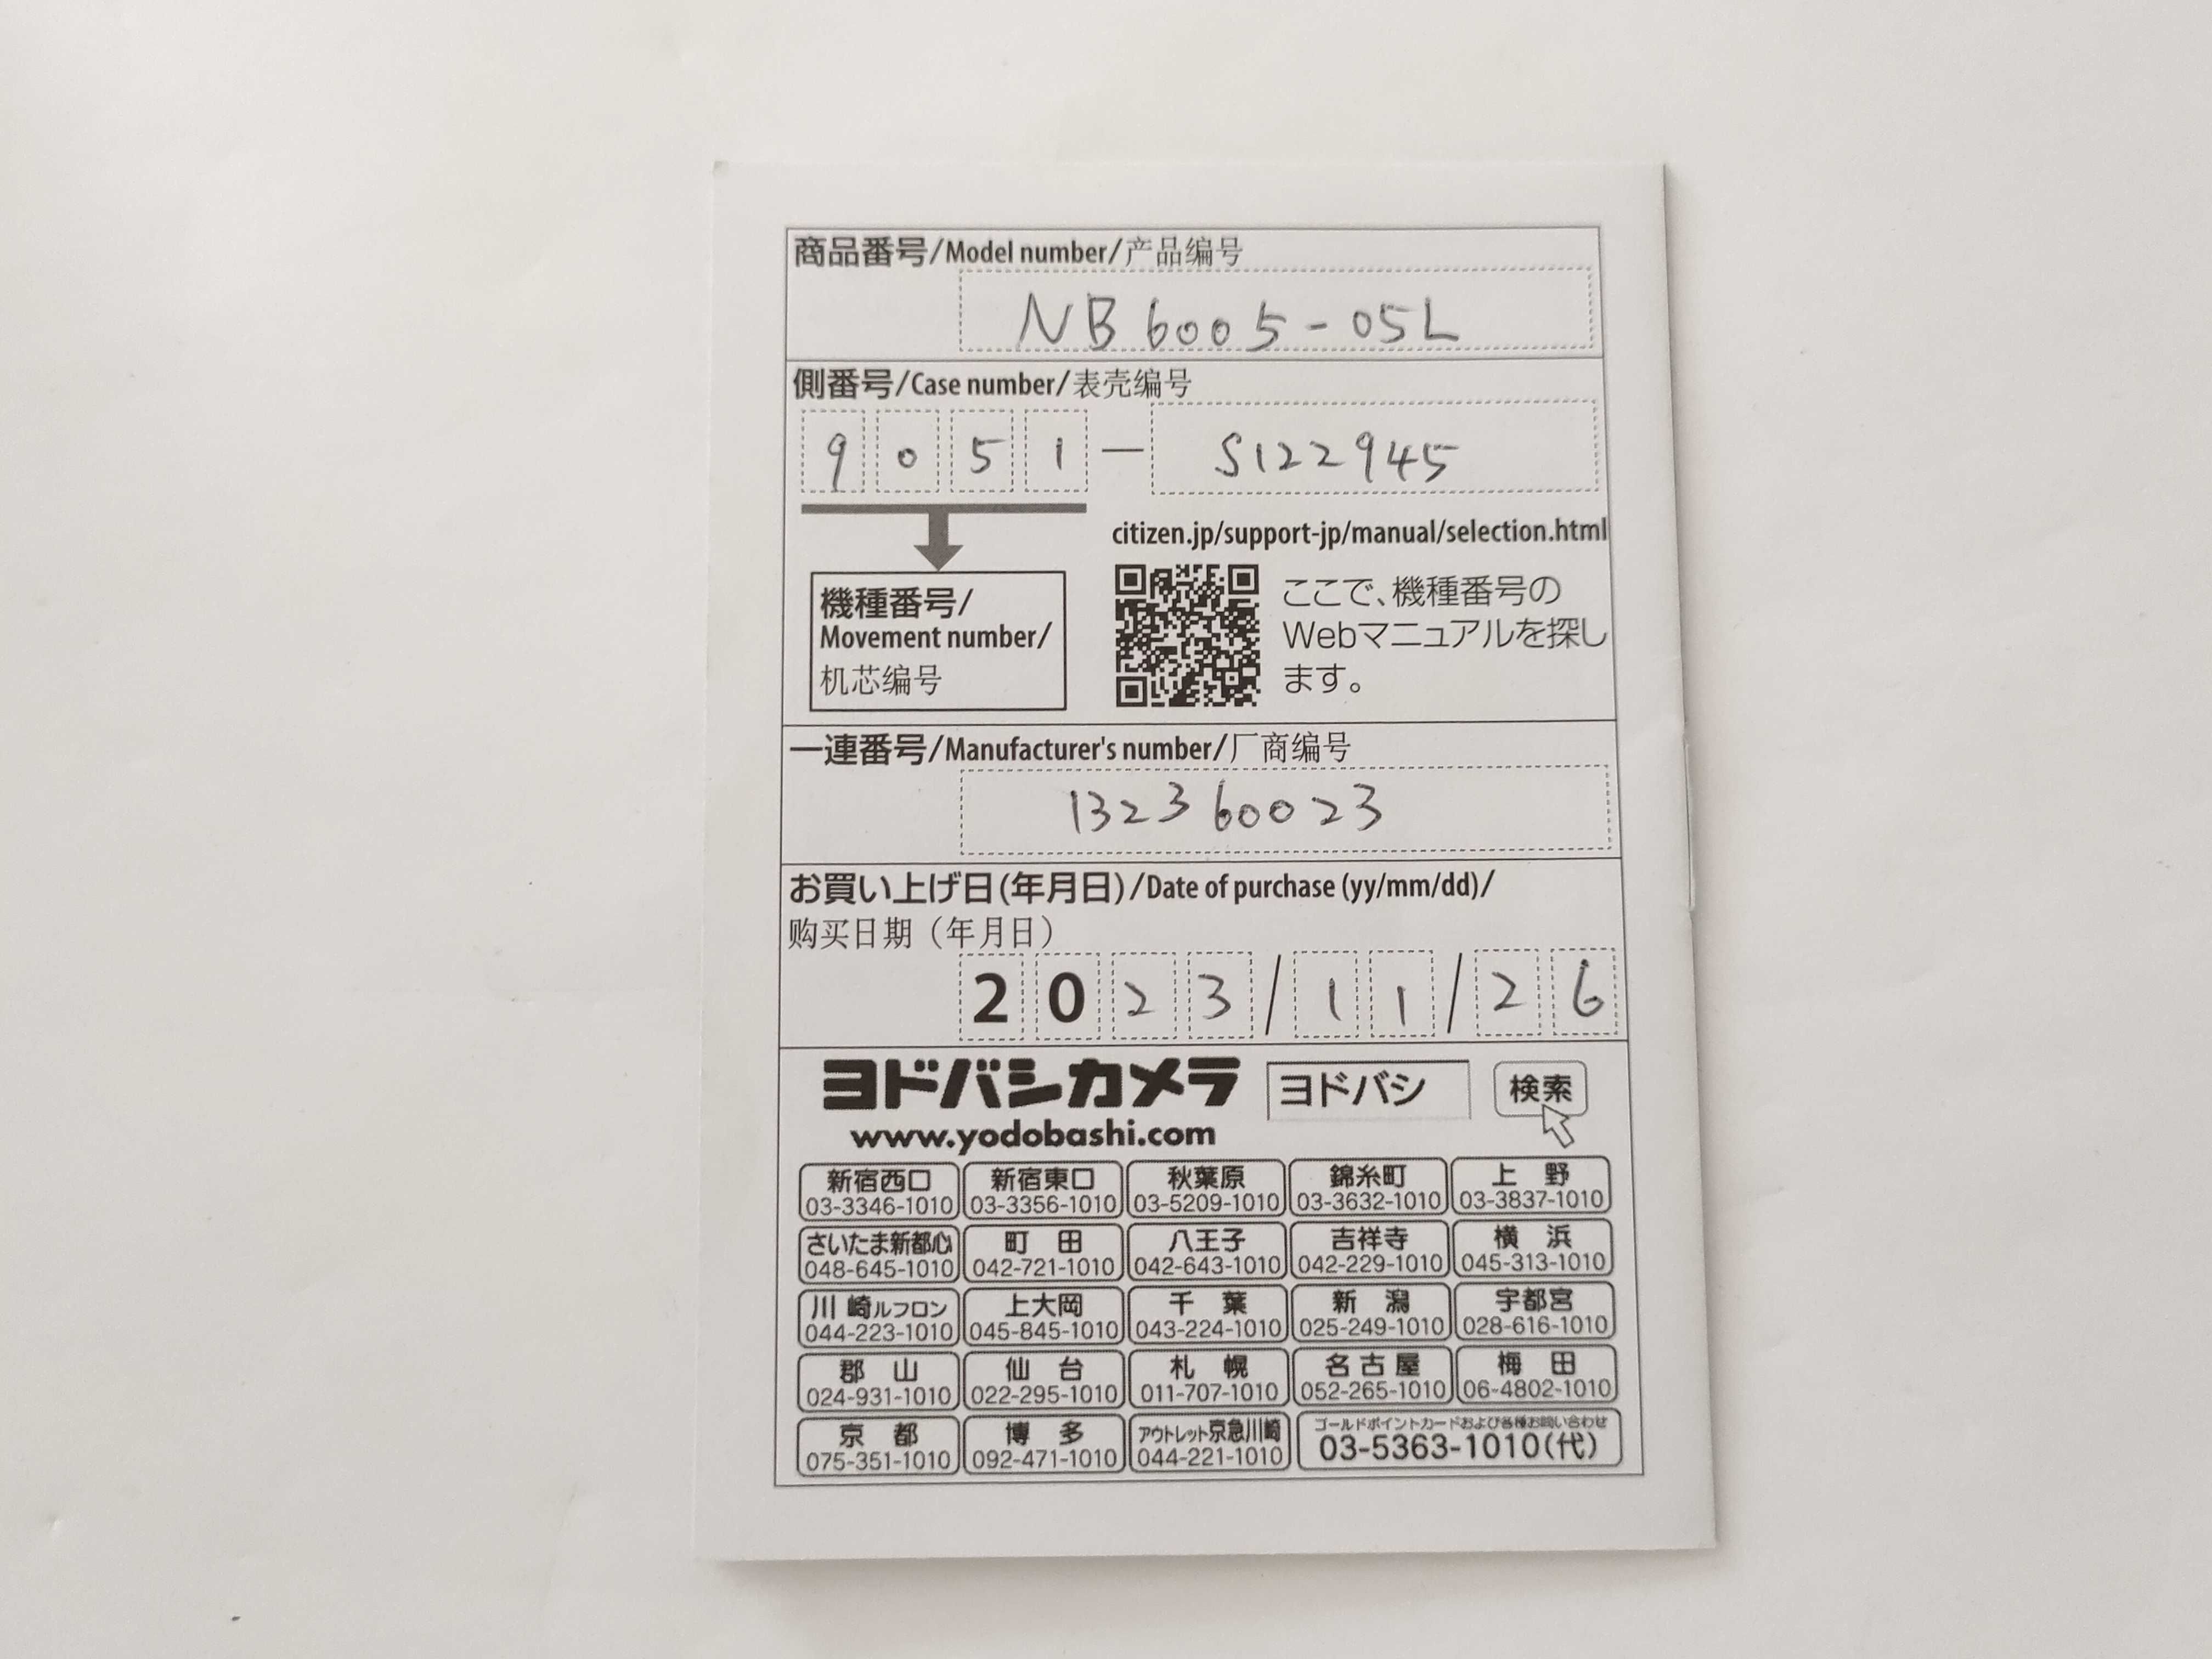 商品番号/Model number/产品编号
NB6005-05L
側番号/Case number/表壳编号
9051-S122945
citizen.jp/support-jp/manual/selection.html
機種番号/
Movement number/
机芯编号
ここで、機種番号の
Webマニュアルを探し
ます。
一連番号/Manufacturer's number/厂商编号
132360023
お買い上げ日(年月日)/Date of purchase (yy/mm/dd)/
购买日期（年月日）
2023/11/26
ヨドバシカメラ ヨドバシ 検索
www.yodobashi.com
新宿西口 新宿東口 秋葉原 錦糸町 上野
03-3346-1010 03-3356-1010 03-5209-1010 03-3632-1010 03-3837-1010
さいたま新都心 町田 八王子 吉祥寺 横浜
048-645-1010 042-721-1010 042-643-1010 042-229-1010 045-313-1010
川崎ルフロン 上大岡 千葉 新潟 宇都宮
044-223-1010 045-845-1010 043-224-1010 025-249-1010 028-616-1010
郡山 仙台 札幌 名古屋 梅田
024-931-1010 022-295-1010 011-707-1010 052-265-1010 06-4802-1010
京都 博多 アウトレット京急川崎 ゴールドポイントカードおよび各種お問い合わせ
075-351-1010 092-471-1010 044-221-1010 03-5363-1010(代)